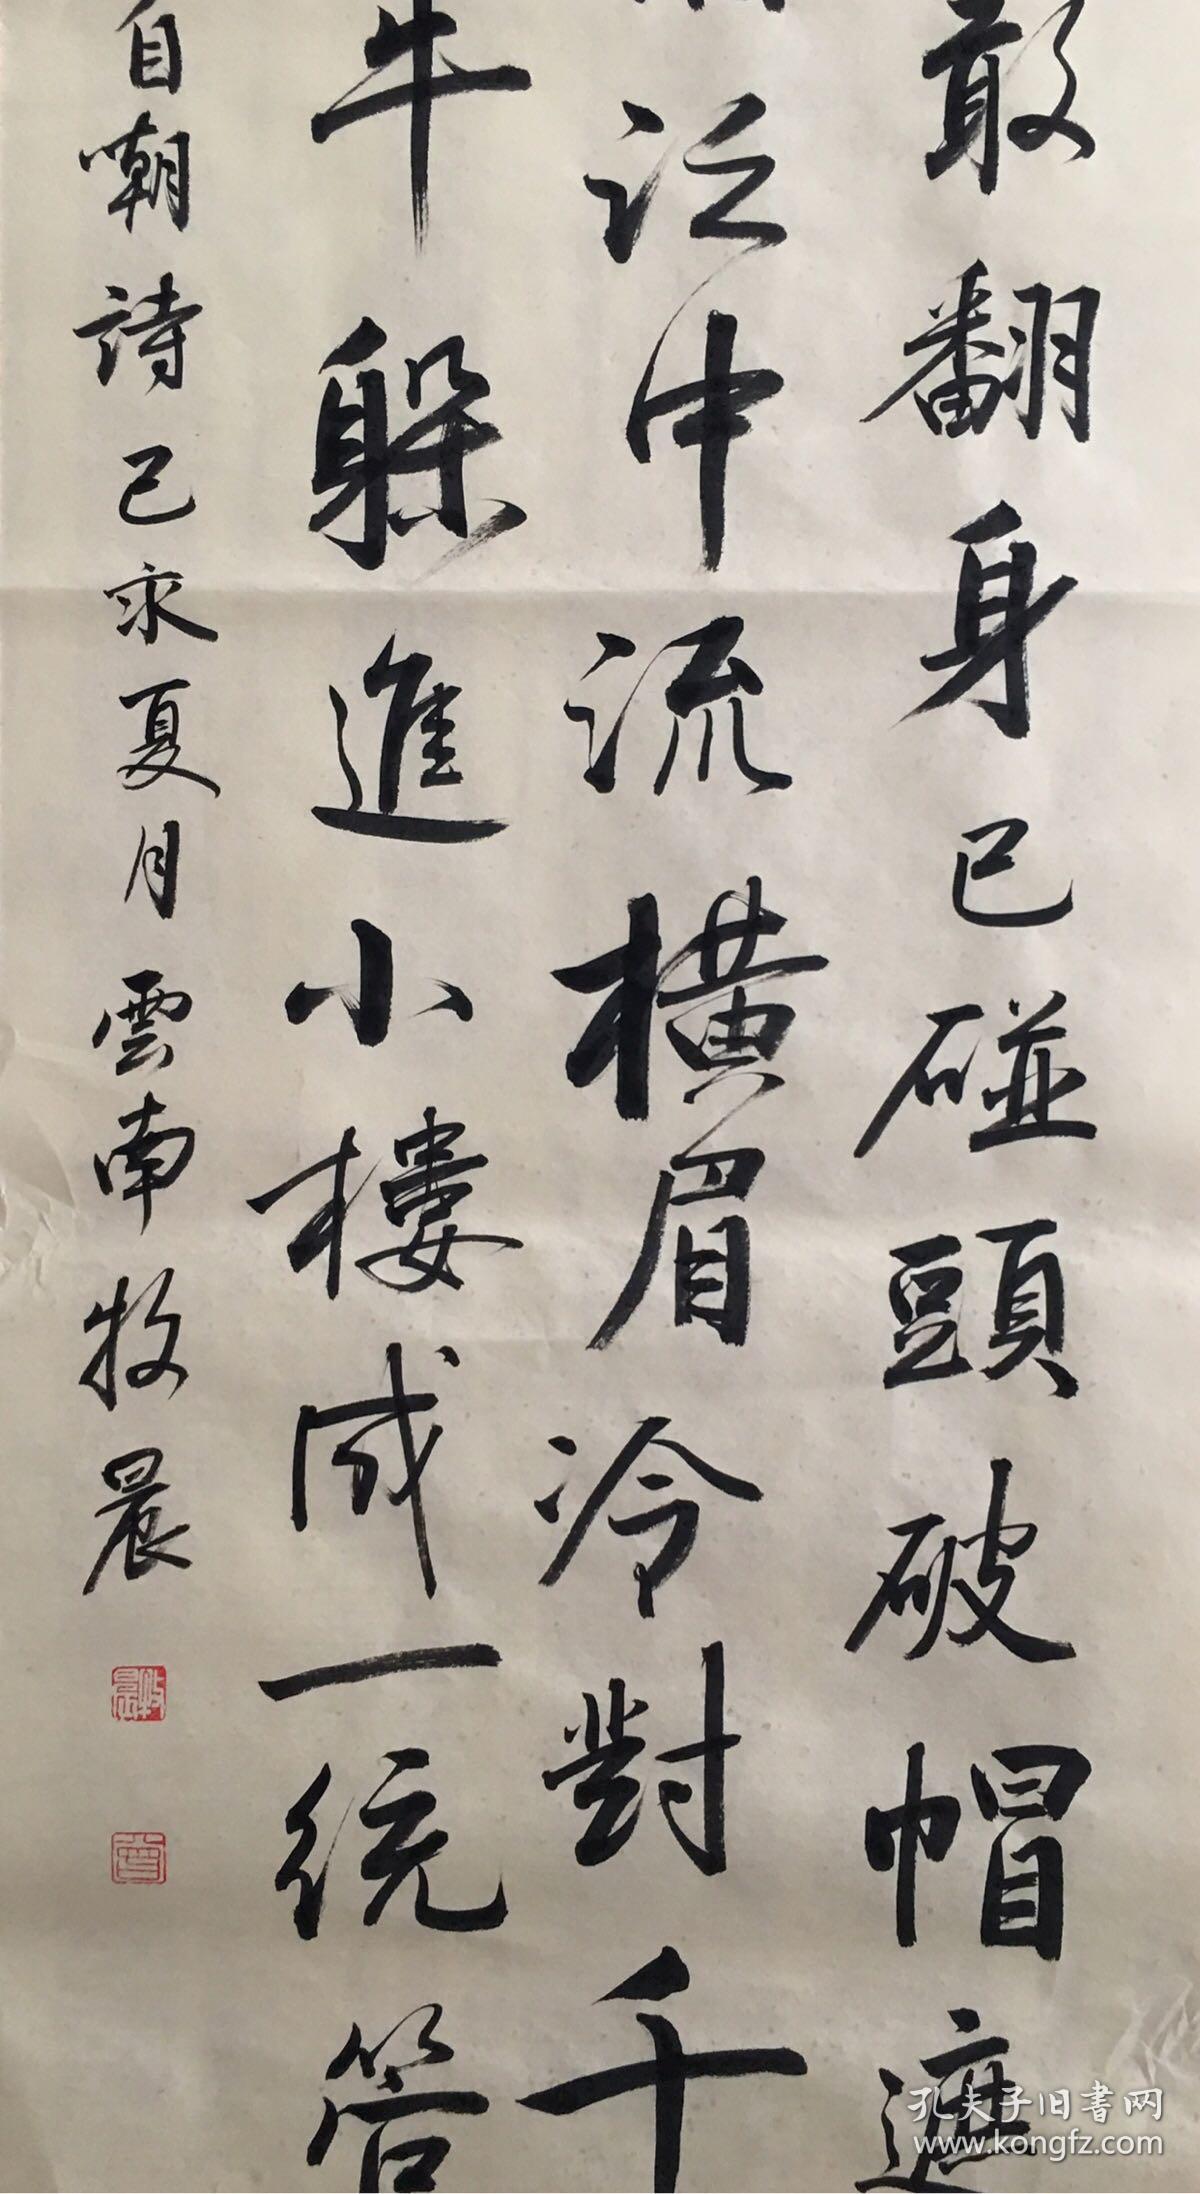 敢翻身已碰頭破帽遮
泛中流橫眉冷對千
牛躲進小樓成一統管
自嘲詩己亥夏月雲南牧晨
牧晨
孔夫子旧書网
www.kongfz.com